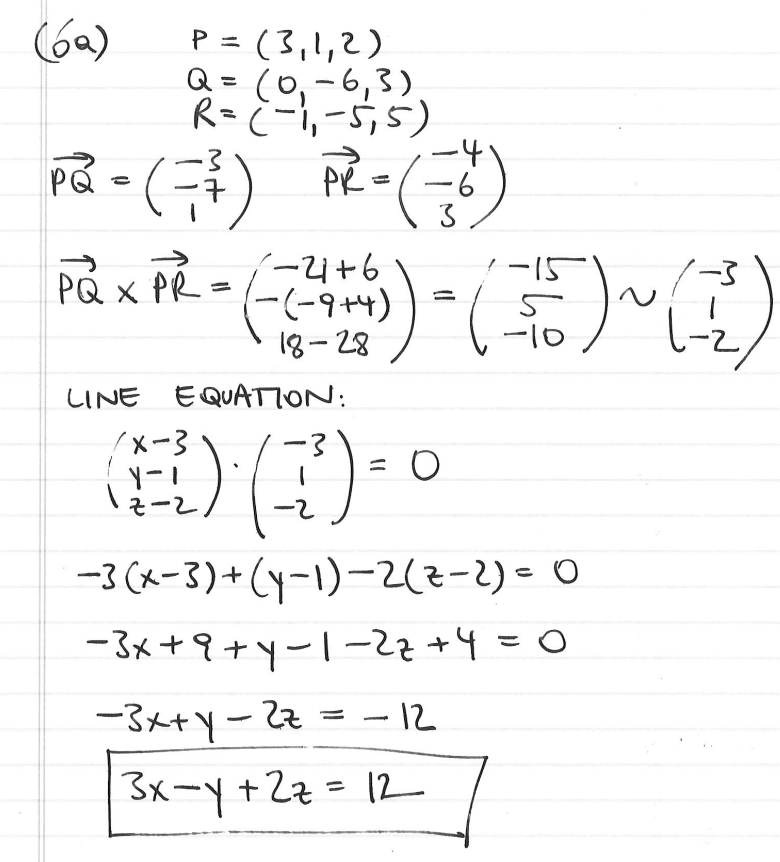 (6a) P = (3,1,2)
Q = (0,-6,3)
R = (-1,-5,5)
PQ⃗ = (-3, -7, 1) PR⃗ = (-4, -6, 3)
PQ⃗ × PR⃗ = (-21+6, -(-9+4), 18-28) = (-15, 5, -10) ~ (-3, 1, -2)
LINE EQUATION:
(x-3, y-1, z-2) · (-3, 1, -2) = 0
-3(x-3)+(y-1)-2(z-2)= 0
-3x+9+y-1-2z+4 = 0
-3x+y-2z = -12
3x-y+2z = 12